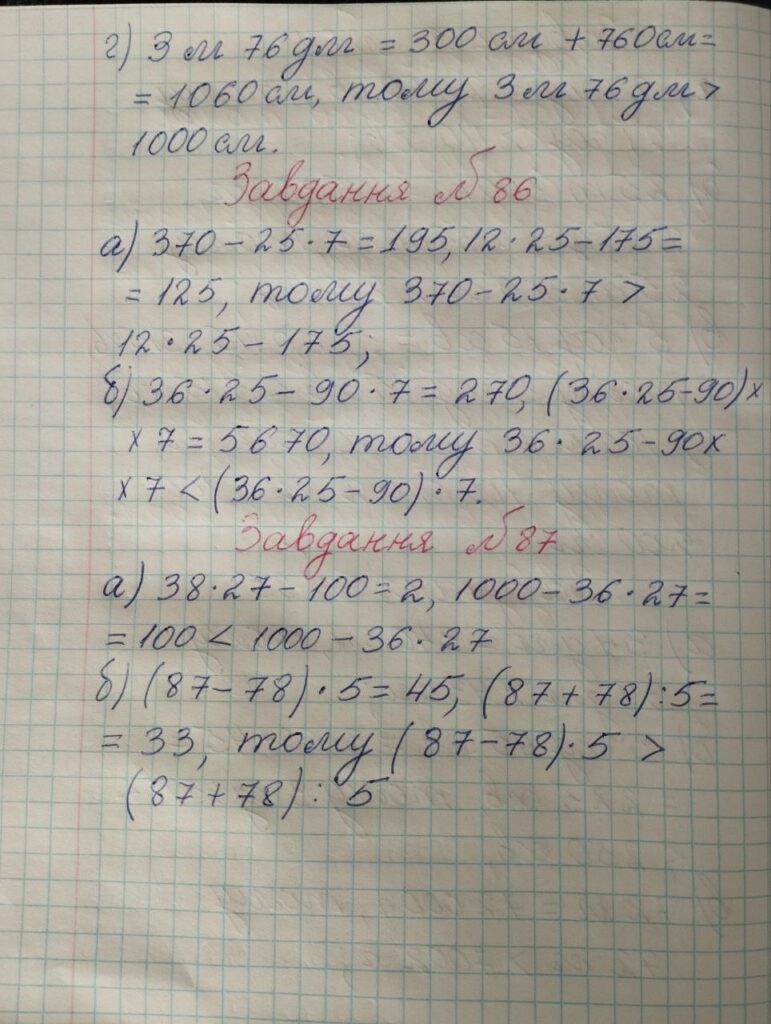 г) 3 м 76 дм = 300 см + 760 см =
= 1060 см, тому 3 м 76 дм >
1000 см.
Завдання № 86
а) 370 - 25 · 7 = 195, 12 · 25 - 175 =
= 125, тому 370 - 25 · 7 >
12 · 25 - 175;
б) 36 · 25 - 90 · 7 = 270, (36 · 25 - 90) ×
× 7 = 5670, тому 36 · 25 - 90 ×
× 7 < (36 · 25 - 90) · 7.
Завдання № 87
а) 38 · 27 - 100 = 2, 1000 - 36 · 27 =
= 100 < 1000 - 36 · 27
б) (87 - 78) · 5 = 45, (87 + 78) : 5 =
= 33, тому (87 - 78) · 5 >
(87 + 78) : 5